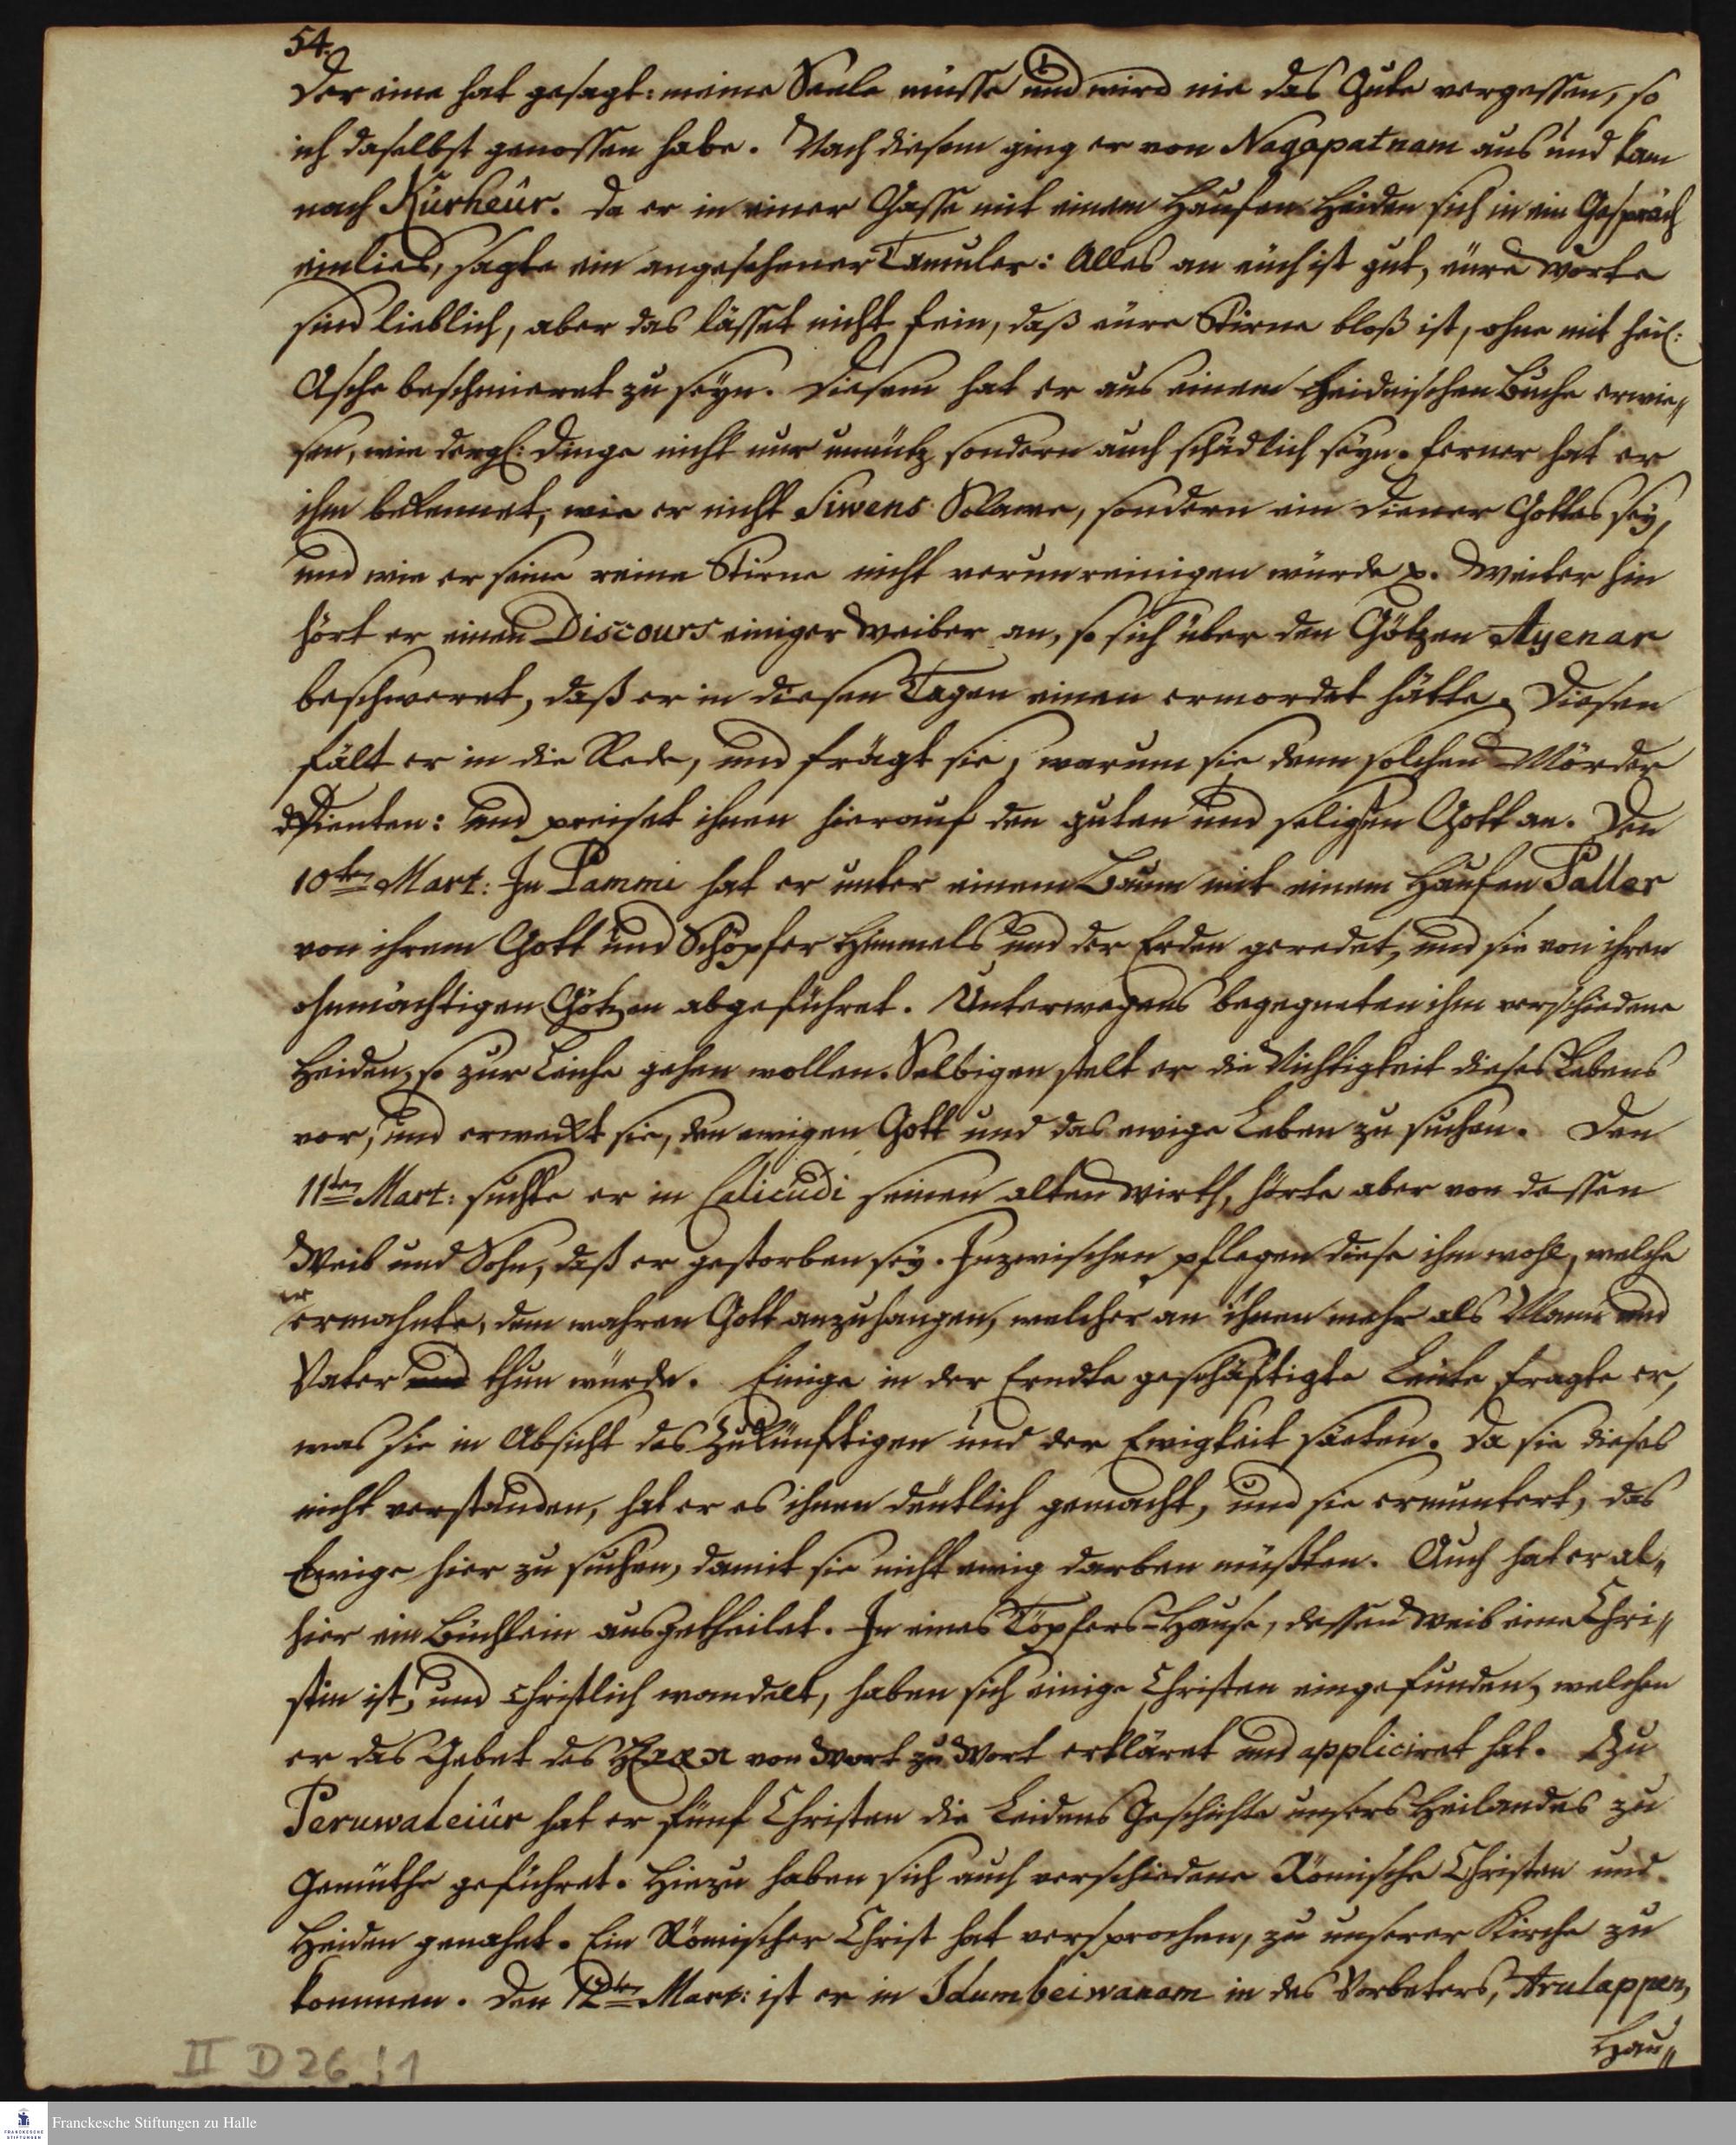 54.
Der eine hat gesagt: meine Seele müsse und wird nie das Gute vergessen, so
ich daselbst genossen habe. Nach diesem ging er von Nagapatnam aus und kam
nach Kûrheûr. Da er in einer Gasse mit einem Haufen Heiden sich in ein Gespräch
einlies, sagte ein angesehener Tamuler: Alles an euch ist gut, eure Worte
sind lieblich, aber das lässet nicht fein, daß eure Stirne bloß ist, ohne mit heil:
Asche beschmieret zu seyn. Diesem hat er aus einem Heidnischen Buche erwie„
sen, wie dergl: Dinge nicht nur unnütz sondern auch schädlich seyn. Ferner hat er
ihm bekennet, wie er nicht Siwens Sclave, sondern ein Diener Gottes sey,
und wie er seine reine Stirne nicht verunreinigen würde p. Weiter hin
hört er einen Discours einiger Weiber an, so sich über den Götzen Ayenar
beschweret, daß er in diesen Tagen einen ermordet hätte. Diesen
fält er in die Rede, und frägt sie, warum sie denn solchen Mörder
dienten: und preiset ihnen hierauf den guten und seligen Gott an. Den
10ten Mart: In Pammi hat er unter einem Baum mit einem Haufen Paller
von ihrem Gott und Schöpfer Himmels und der Erden geredet, und sie von ihren
ohnmächtigen Götzen abgeführet. Unterwegens begegneten ihm verschiedene
Heiden, so zur Leiche gehen wollen. Selbigen stelt er die Nichtigkeit dieses Lebens
vor, und erweckt sie, den ewigen Gott und das ewige Leben zu suchen. Den
11ten Mart: suchte er in Calicudi seinen alten Wirth, hörte aber von dessen
Weib und Sohn, daß er gestorben sey. Inzwischen pflegen diese ihm wohl, welche
er
ermahnte, dem wahren Gott anzuhangen, welcher an ihnen mehr als Mann und
Vater thun würde. Einige in der Erndte geschäftigte Leute fragte er,
was sie in Absicht des Zukünftigen und der Ewigkeit säeten. Da sie dieses
nicht verstanden, hat er es ihnen deutlich gemacht, und sie ermuntert, das
Ewige hier zu suchen, damit sie nicht ewig darben müßten. Auch hat er al„
hier ein Büchlein ausgetheilet. In eines Töpfers-Hause, dessen Weib eine Chri„
stin ist, und christlich wandelt, haben sich einige Christen eingefunden, welchen
er das Gebet des HErrn von Wort zu Wort erkläret und appliciret hat. Zu
Peruwaleiûr hat er fünf Christen die Leidens Geschichte unsers Heilandes zu
Gemüthe geführet. Hiezu haben sich auch verschiedene Römische Christen und
Heiden genahet. Ein Römischer Christ hat versprochen, zu unserer Kirche zu
kommen. Den 12ten Mart: ist er in Idumbeiwanam in des Vorbeters, Arulappen,
Hau„
II D 26 : 1
Franckesche Stiftungen zu Halle
FRANCKESCHE
STIFTUNGEN